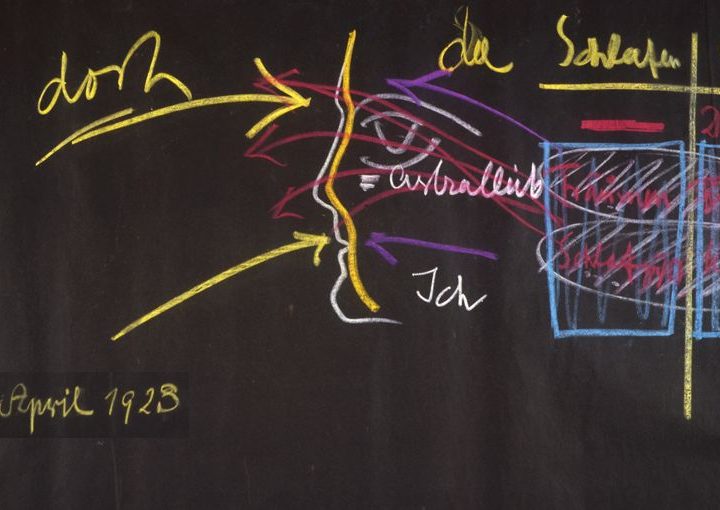 dort
da
Schlafen
2
= Astralleib
Träumen
Schlafen
Ich
April 1923